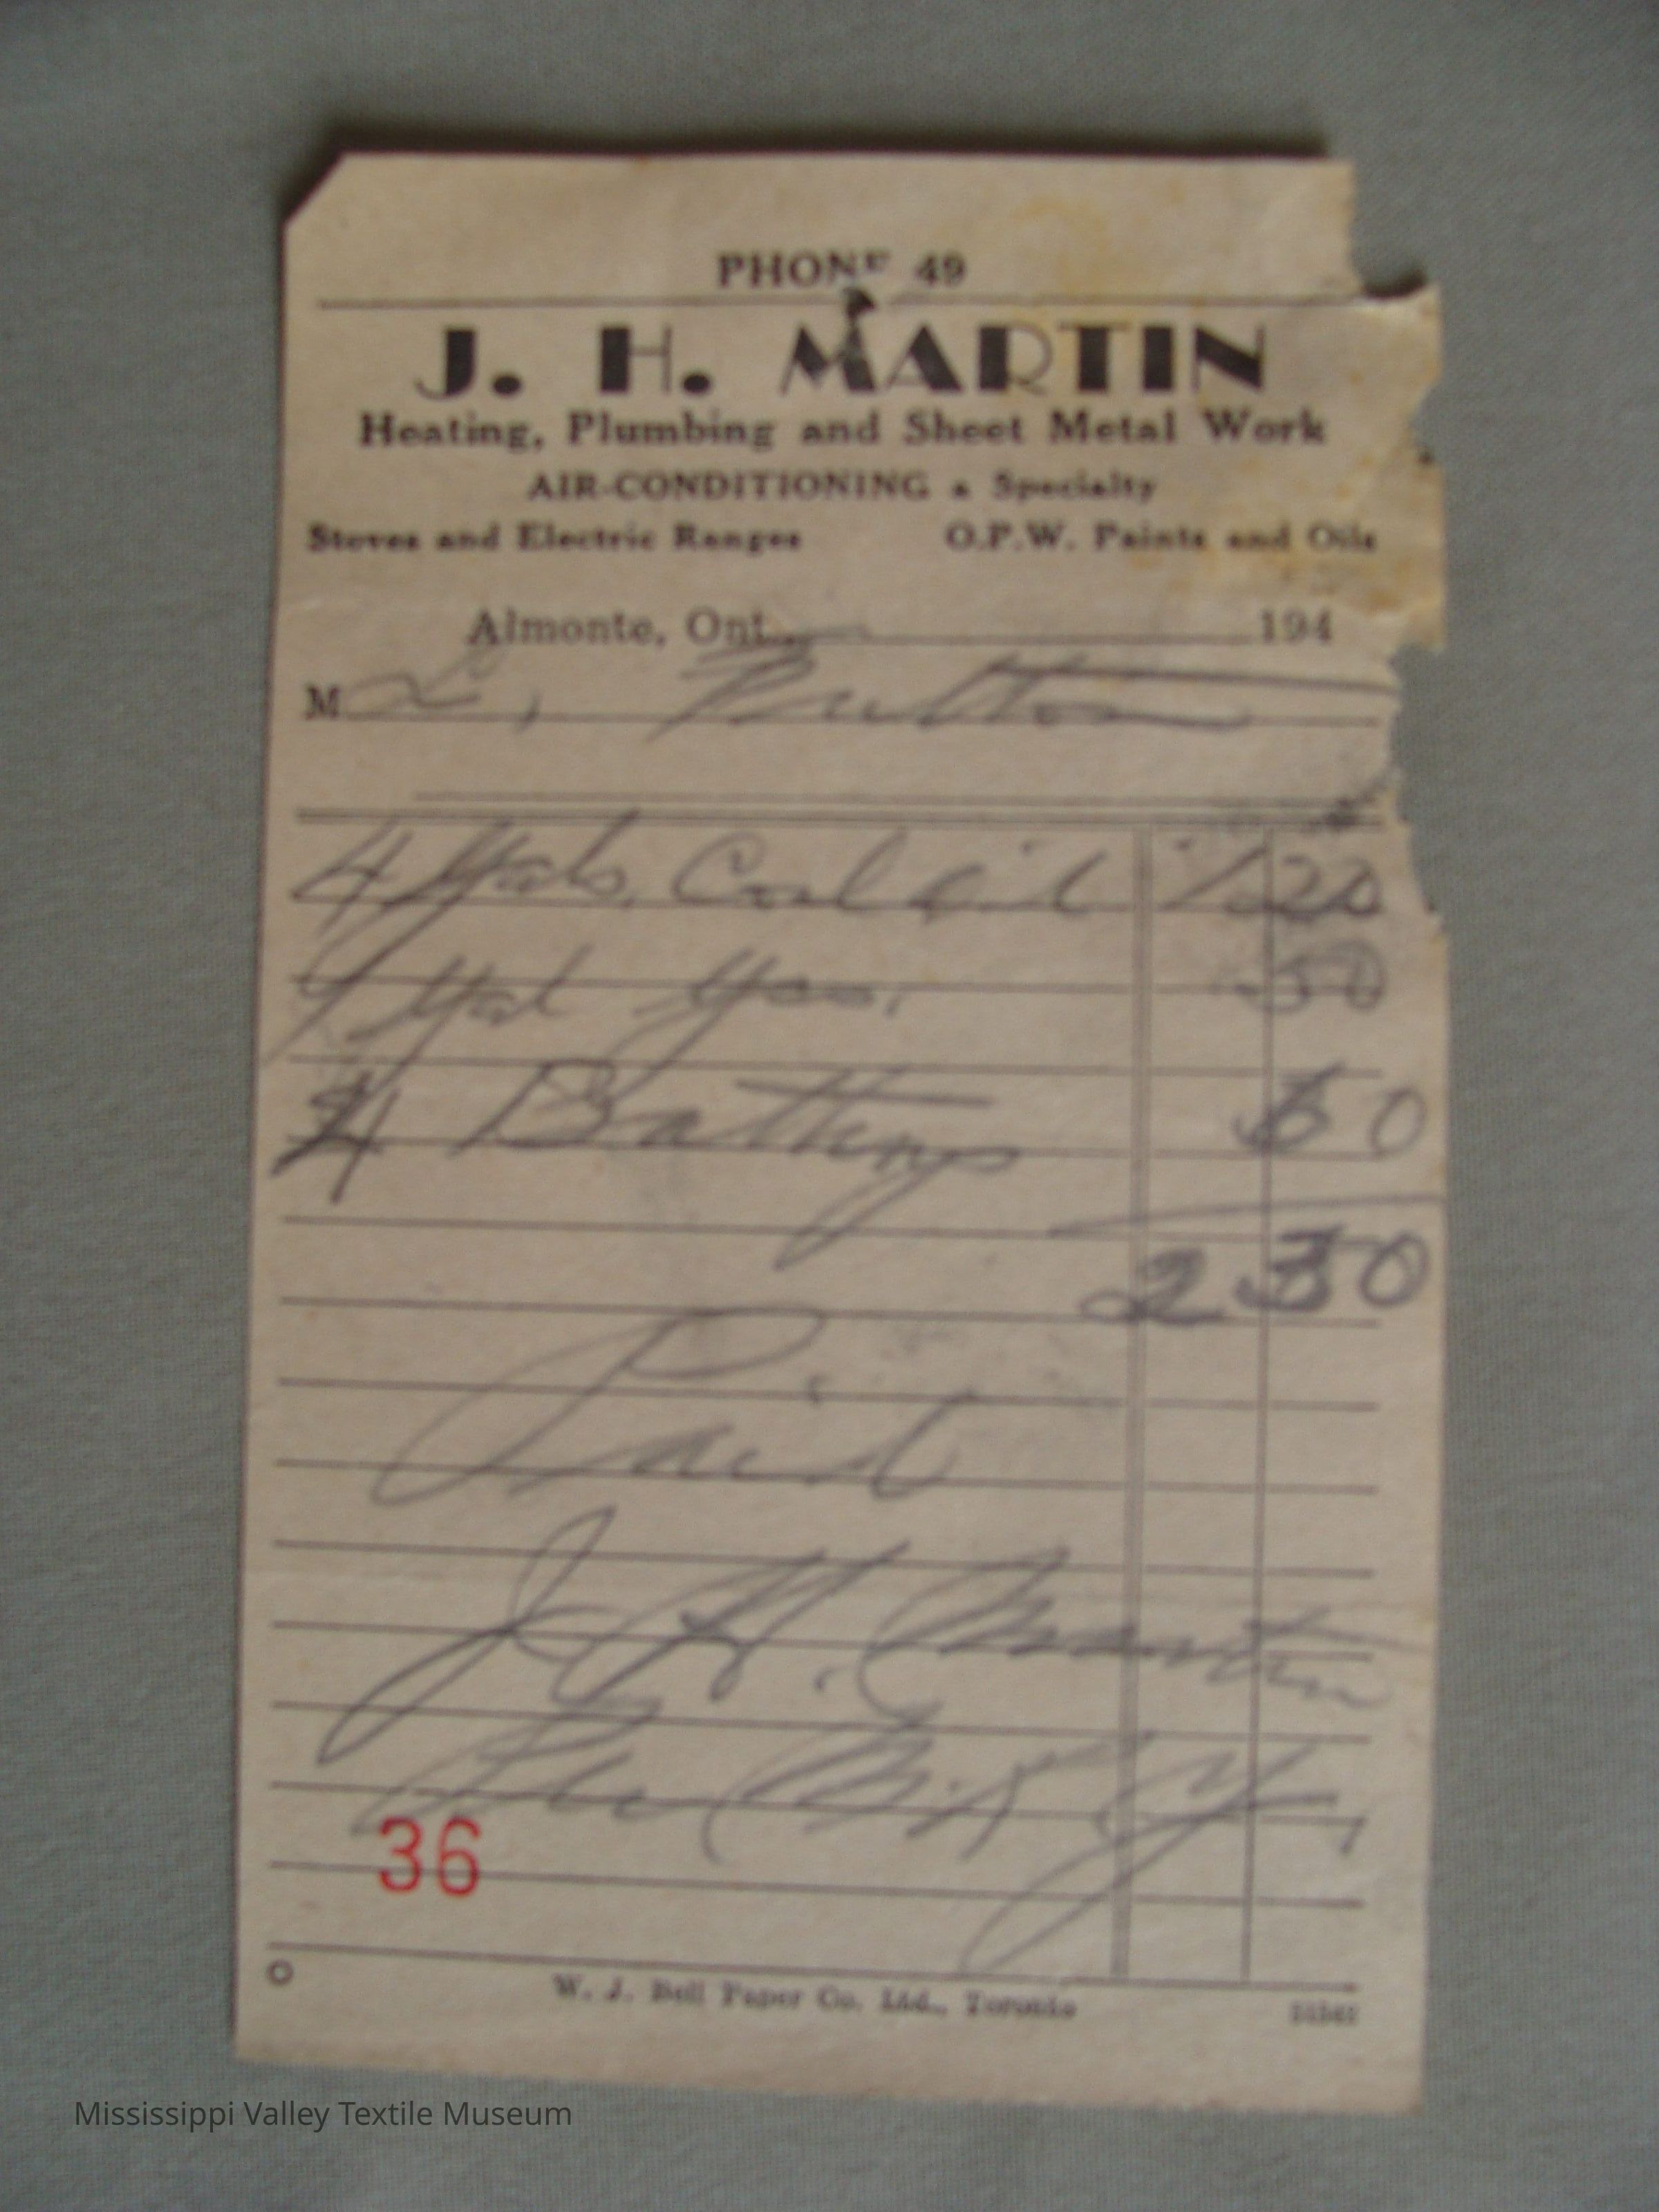 PHONE 49
J. H. MARTIN
Heating, Plumbing and Sheet Metal Work
AIR-CONDITIONING a Specialty
Stoves and Electric Ranges O.P.W. Paints and Oils
Almonte, Ont. 194
M L,
4 Gals. Coal oil 1 20
1 Gal Gas. 50
4 Batterys 60
2 30
Paid
J. H. Martin
Per
36
W. J. Bell Paper Co. Ltd., Toronto
Mississippi Valley Textile Museum